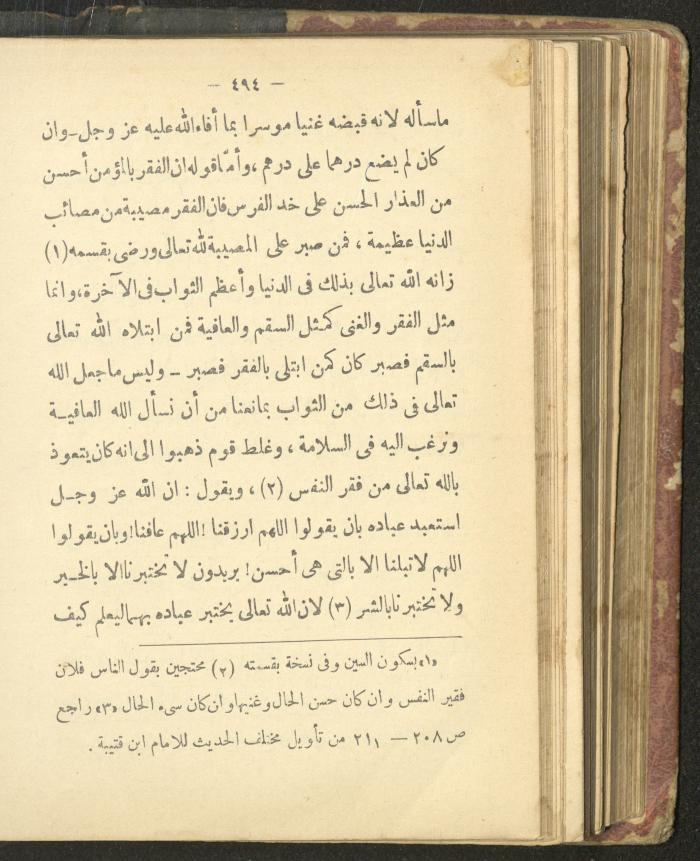 — ٤٩٤ —
ماسأله لانه قبضه غنيا موسرا بما أفاءالله عليه عز وجل ـ وان
كان لم يضع درهما على درهم ، وأمّا قوله ان الفقر بالمؤمن أحسن
من العذار الحسن على خد الفرس فان الفقر مصيبة من مصائب
الدنيا عظيمة ، فمن صبر على المصيبة لله تعالى ورضى بقسمه (١)
زانه الله تعالى بذلك فى الدنيا وأعظم الثواب فى الآخرة ، وانما
مثل الفقر والغنى كمثل السقم والعافية فمن ابتلاه الله تعالى
بالسقم فصبر كان كمن ابتلى بالفقر فصبر ــ وليس ماجعل الله
تعالى فى ذلك من الثواب بمانعنا من أن نسأل الله العافيـة
ونرغب اليه فى السلامة ، وغلط قوم ذهبوا الى انه كان يتعوذ
بالله تعالى من فقر النفس (٢) ، ويقول : ان الله عز وجـل
استعبد عباده بان يقولوا اللهم ارزقنا ! اللهم عافنا ! وبان يقولوا
اللهم لاتبلنا الا بالتى هى أحسن ! يريدون لا تختبرنا الا بالخـير
ولا تختبرنا بالشر (٣) لان الله تعالى يختبر عباده بهما ليعلم كيف
«١» بسكون السين وفى نسخة بقسمته (٢) محتجين بقول الناس فلان
فقير النفس وان كان حسن الحال وغنيها وان كان سىء الحال «٣» راجع
ص ٢٠٨ — ٢١١ من تأويل مختلف الحديث للامام ابن قتيبة .